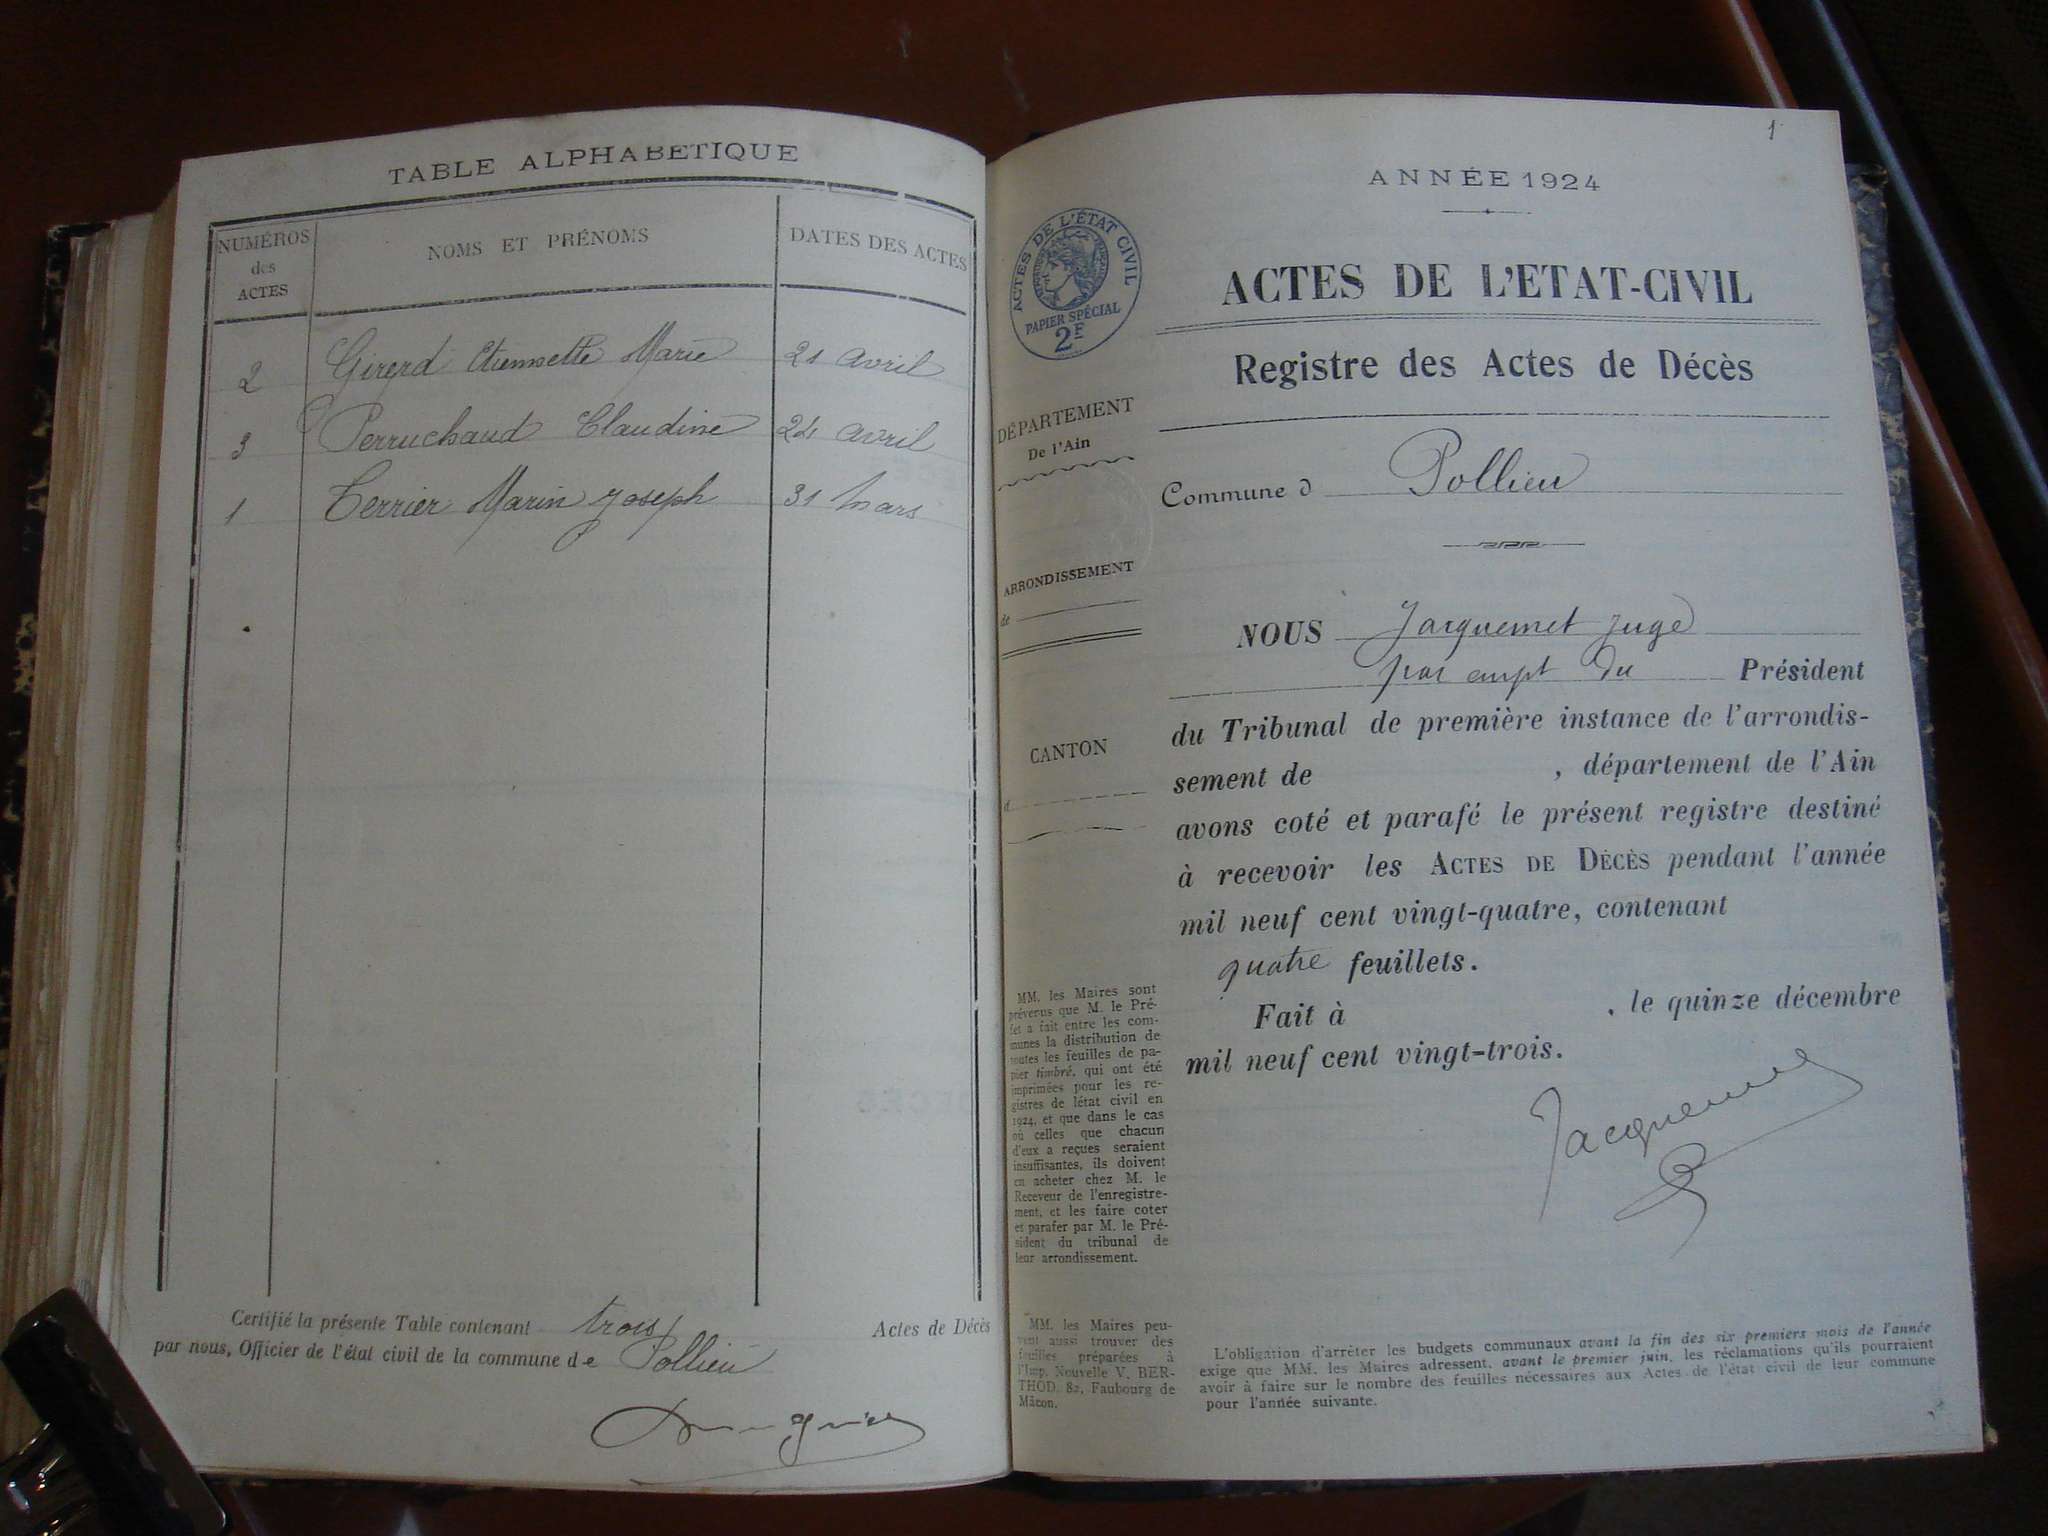 TABLE ALPHABETIQUE
NUMÉROS des ACTES
NOMS ET PRÉNOMS
DATES DES ACTES
2 Girerd Etiennette Marie 21 avril
3 Perruchaud Claudine 24 avril
1 Terrier Marin Joseph 31 Mars
Certifié la présente Table contenant trois Actes de Décès
par nous, Officier de l'état civil de la commune de Pollieu
1
ANNÉE 1924
ACTES DE L'ÉTAT CIVIL
PAPIER SPÉCIAL
2F
ACTES DE L'ETAT-CIVIL
Registre des Actes de Décès
DÉPARTEMENT
De l'Ain
Commune d Pollieu
ARRONDISSEMENT
de
NOUS Jacquemet Juge
par empt du Président
CANTON
d
du Tribunal de première instance de l'arrondis-
sement de , département de l'Ain
avons coté et parafé le présent registre destiné
à recevoir les ACTES DE DÉCÈS pendant l'année
mil neuf cent vingt-quatre, contenant
quatre feuillets.
Fait à , le quinze décembre
mil neuf cent vingt-trois.
Jacquemet
MM. les Maires sont
prévenus que M. le Pré-
fet a fait entre les com-
munes la distribution de
toutes les feuilles de pa-
pier timbré, qui ont été
imprimées pour les re-
gistres de létat civil en
1924, et que dans le cas
où celles que chacun
d'eux a reçues seraient
insuffisantes, ils doivent
en acheter chez M. le
Receveur de l'enregistre-
ment, et les faire coter
et parafer par M. le Pré-
sident du tribunal de
leur arrondissement.
MM. les Maires peu-
vent aussi trouver des
feuilles préparées à
l'Imp. Nouvelle V. BER-
THOD, 82, Faubourg de
Mâcon.
L'obligation d'arrêter les budgets communaux avant la fin des six premiers mois de l'année
exige que MM. les Maires adressent, avant le premier juin, les réclamations qu'ils pourraient
avoir à faire sur le nombre des feuilles nécessaires aux Actes de l'état civil de leur commune
pour l'année suivante.